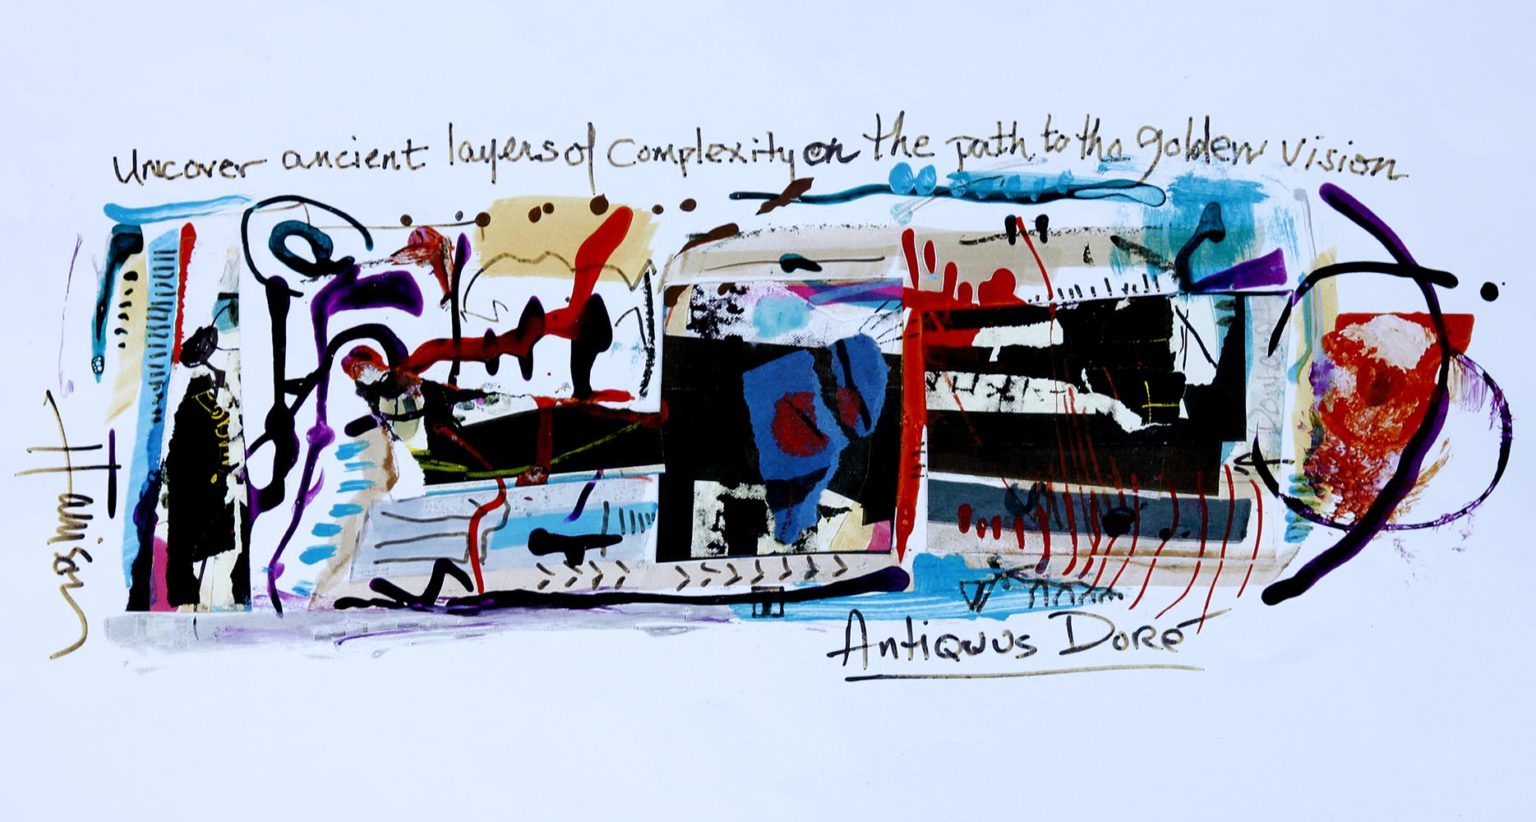 Uncover ancient layers of complexity on the path to the golden vision
Harrison
Antiquus Doré